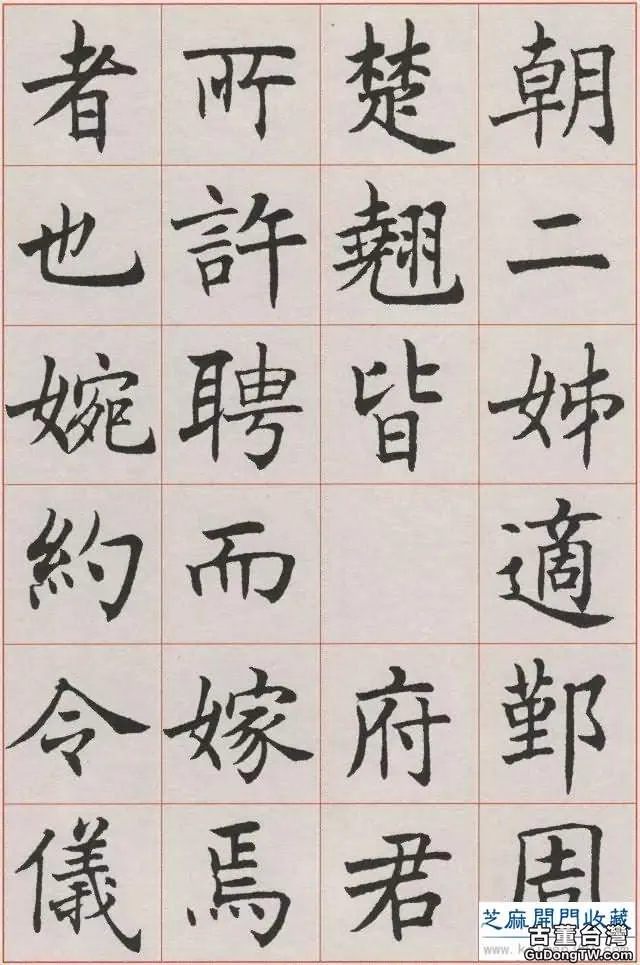 朝二姊適鄞周
楚翹皆府君
所許聘而嫁焉
者也婉約令儀
芝麻開門收藏
古董台灣
GuDongTW.com